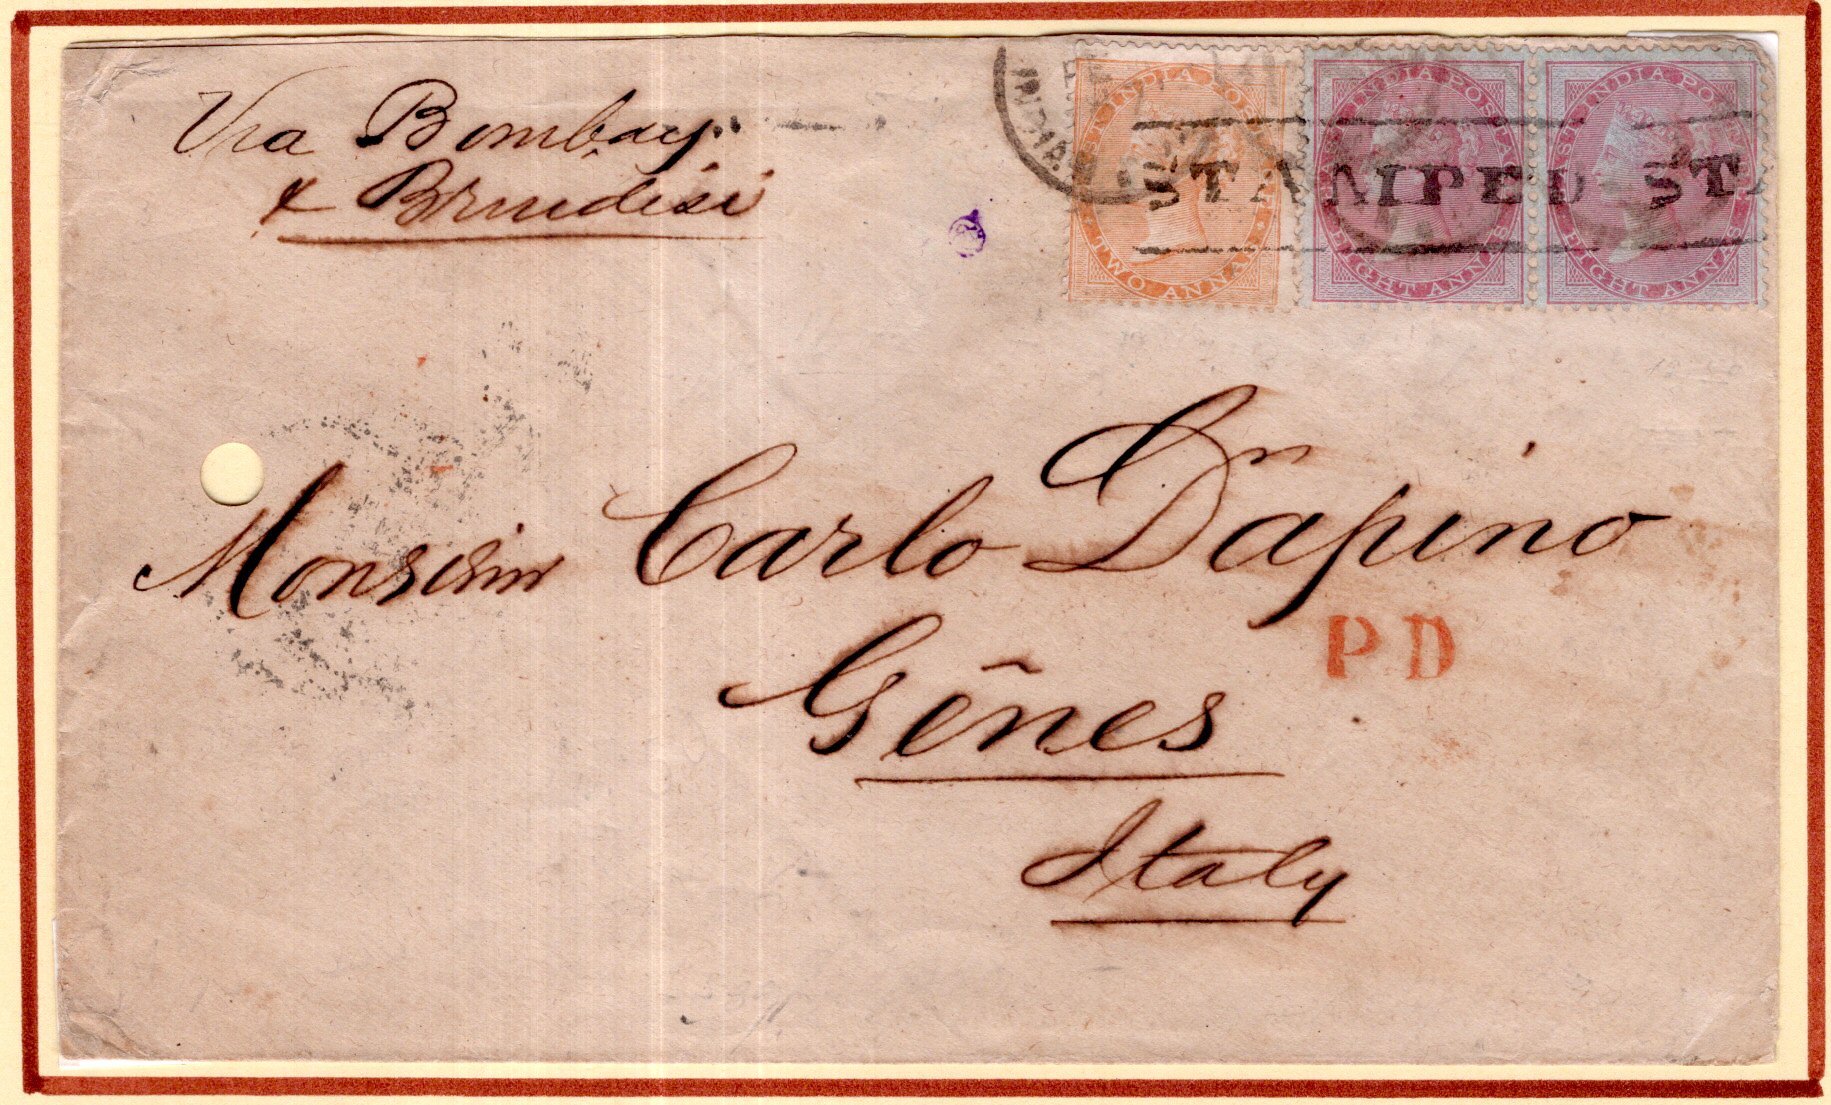 Via Bombay
& Brindisi
EAST INDIA POSTAGE
TWO ANNAS
EAST INDIA POSTAGE
EIGHT ANNAS
EAST INDIA POSTAGE
EIGHT ANNAS
STAMPED STA
INDIA
Monsieur Carlo Dapino
P D
Gênes
Italy